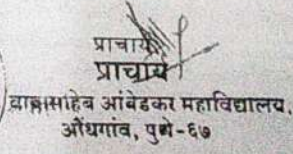 प्राचार्य
प्राचार्य
बाबासाहेब आंबेडकर महाविद्यालय,
औंधगांव, पुणे-६७